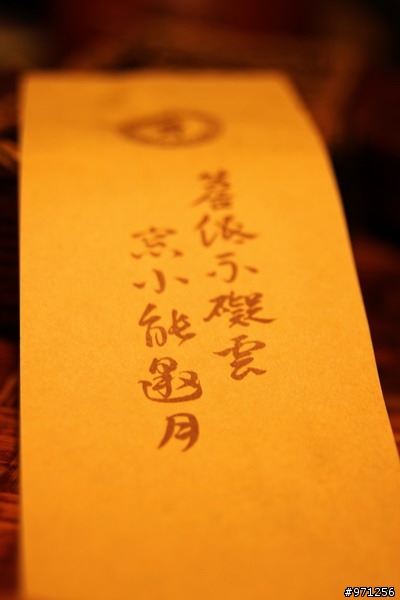 簷低不礙雲
窗小能邀月
#971256